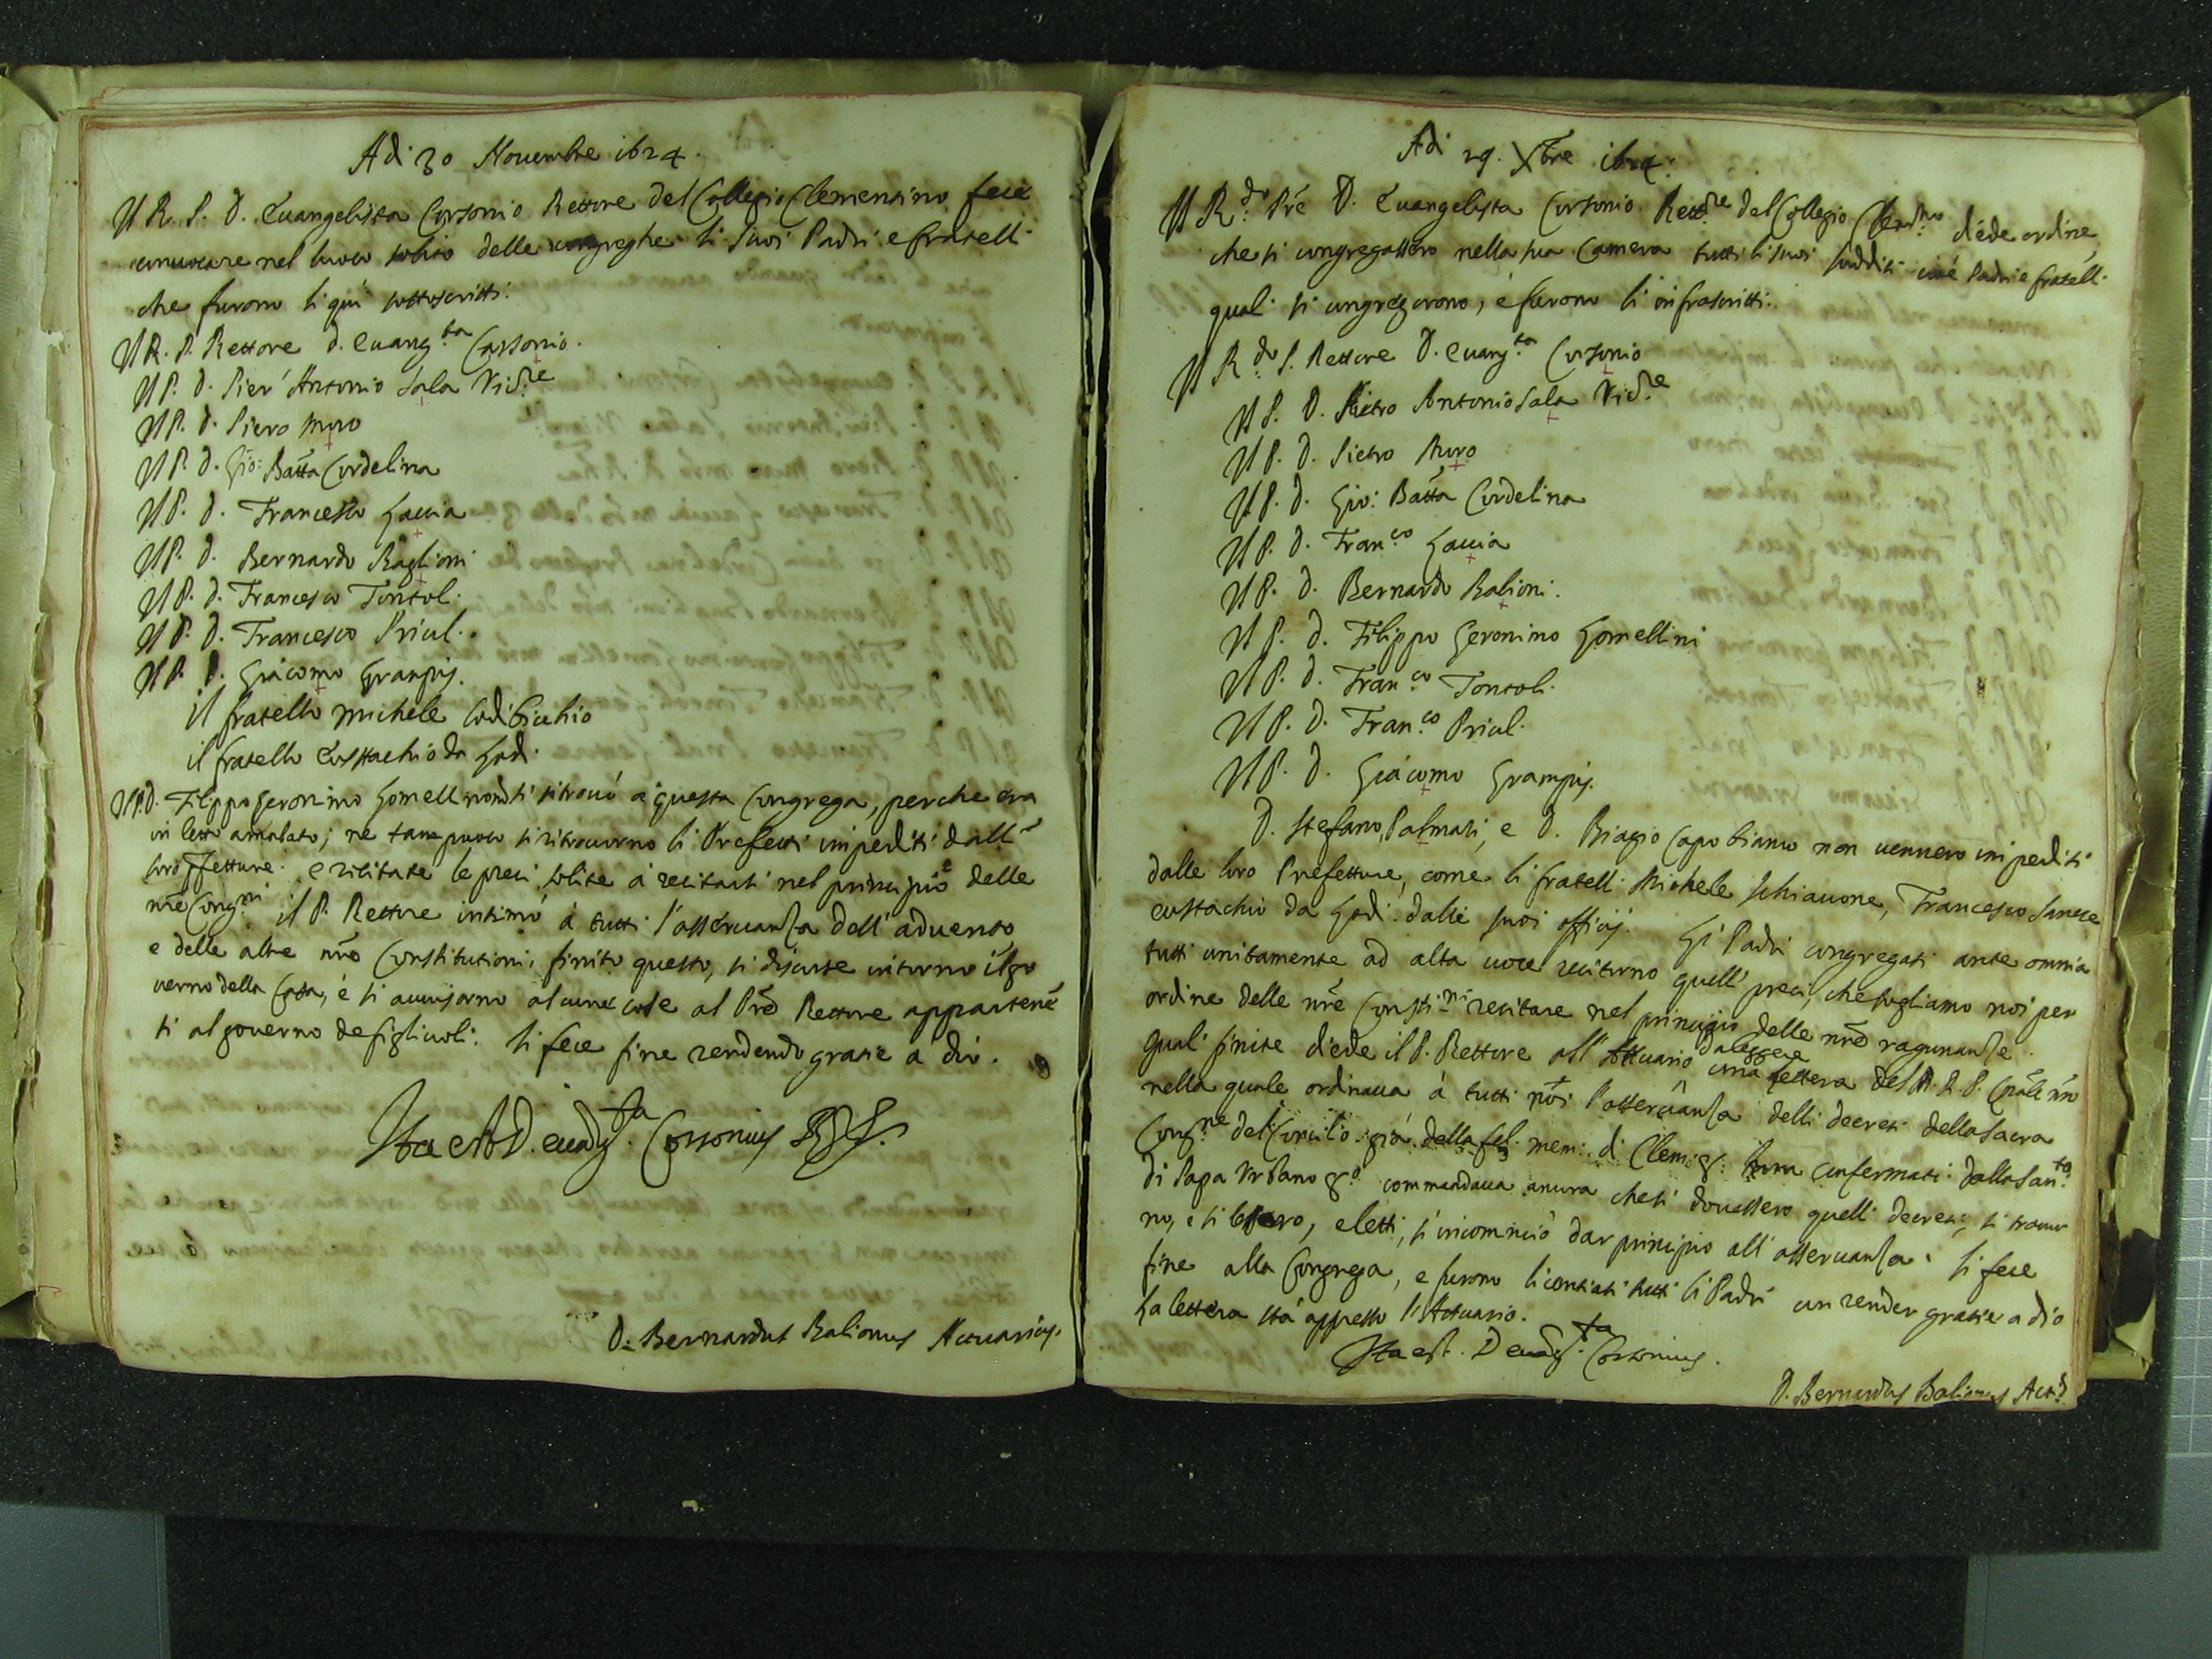 Adi 30 Nouembre 1624.
Il R. P. D. Euangelista Cortonio Rettore del Collegio Clementino fece
conuocare nel luoco solito delle congreghe li suoi Padri e fratelli
che furono li quì sottoscritti.
Il R. P. Rettore D. Euang.ta Cortonio.
Il P. D. Pier' Antonio Sala Vic.re
Il P. D. Piero Muro
Il P. D. Gio: Batta Cordelina
Il P. D. Francesco Laccia
Il P. D. Bernardo Baglioni
Il P. D. Francesco Tontol.
Il P. D. Francesco Priul.
Il P. D. Giacomo Grampis.
il fratello Michele
il fratello Eustachio da Lodi.
Il P. D. Filippo Geronimo Lomell non si ritrouò a questa Congrega, perche era
in letto amalato; ne tam puoco si ritrouorno li Prefetti impediti dall
loro ffetture. e recitate le preci solite à recitarsi nel principio delle
nre Cong.ni il P. Rettore intimò à tutti l'osseruanza dell' aduento
e delle altre nre Constitutioni, finito questo, si discorse intorno il go
uerno della Casa, è si auuisorno alcune cose al Pre Rettore appartenē
ti al gouerno de figliuoli. Si fece fine rendendo gratie a dio.
Ita est D. Euang.ta Cortonius
D. Bernardus Balionus Actuarius.
Adi 29. Xbre 1624.
Il R.do Pre D. Euangelista Cortonio Rett.re del Collegio Clem.no diede ordine
che si congregassero nella sua Camera tutti li suoi sudditi cioè Padri e fratelli
quali si congregorono, e furono li infrascritti.
Il R.do P. Rettore D. Euang.ta Cortonio
Il P. D. Pietro Antonio Sala Vic.re
Il P. D. Pietro Muro
Il P. D. Gio: Batta Cordelina
Il P. D. Fran.co Laccia
Il P. D. Bernardo Balioni.
Il P. D. Filippo Geronimo Lomellini
Il P. D. Fran.co Tontoli.
Il P. D. Fran.co Priul.
Il P. D. Giacomo Grampis.
D. Stefano Palmati, e D. Biagio Capobianco non uennero impediti
dalle loro Prefetture, come li fratelli Michele Schiauone, Francesco
eustachio da Lodi dalli suoi officij. Li Padri congregati ante omnia
tutti unitamente ad alta uoce recitorno quelli preci, che sogliamo noi per
ordine delle nre Consti.ni recitare nel principio delle nre ragunanze.
Quali finite diede il P. Rettore all' Attuario da leggere una lettera del M. R. P. Grale nro
nella quale ordinaua à tutti noi l'osseruanza delli decreti della Sacra
Cong.ne del Concilio già della fel. mem. di Clem. 8. confermati dalla San.ta
di Papa Vrbano 8.o commandaua ancora che si douessero quelli decreti, si trouor
no, e si lessero, e letti, s'incominciò dar principio all' osseruanza. Si fece
fine alla Congrega, e furono licentiati tutti li Padri con render gratie a dio
La lettera stà appresso l'Attuario.
Ita est. D Euang.ta Cortonius.
D. Bernardus Balionus Act.s